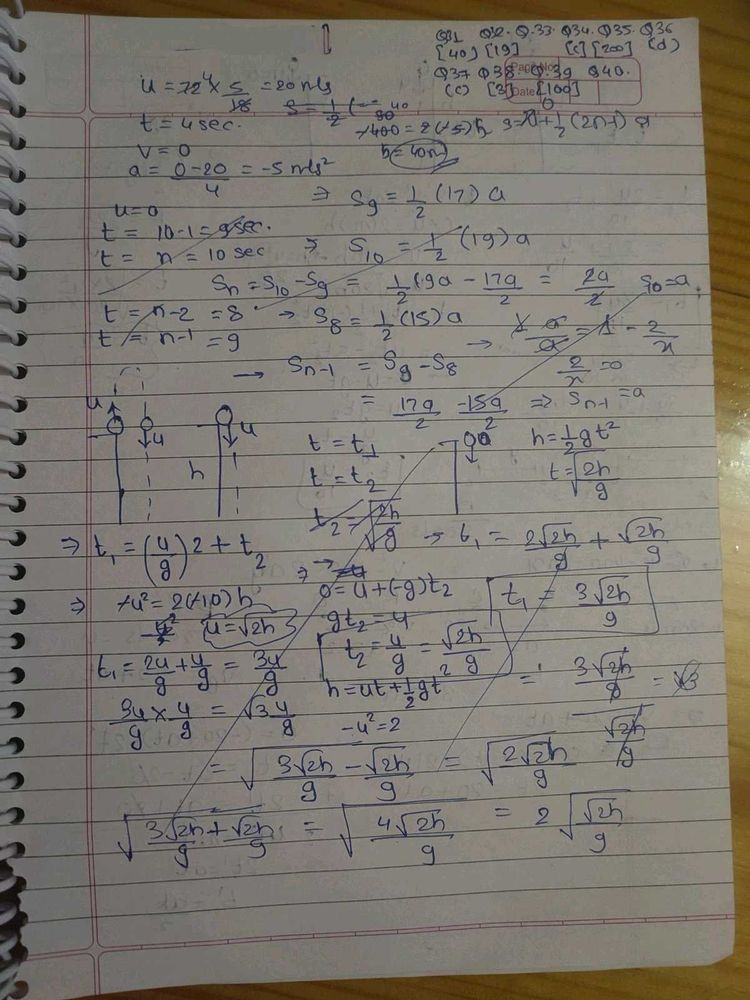 1
Q31 Q32. Q.33. Q34. Q35. Q36
[40] [19] [c] [200] (d)
Q37 Q38. Q.39 Q40.
(c) [3] [100]
0
Page No.
Date
u = 72 × 5/18 = 20 m/s
t = 4 sec.
-400 = 2(-5)h
v = 0
h = 40m
a = (0-20)/4 = -5 m/s²
u = 0
⇒ S9 = 1/2 (17) a
t = 10-1 = 9 sec.
t = n = 10 sec ⇒ S10 = 1/2 (19) a
Sn = S10 - S9 = 1/2 19a - 17a/2 = 2a/2 S10 = a
t = n-2 = 8 → S8 = 1/2 (15) a
t = n-1 = 9
→ 1 - 2/x
2/x = 0
→ Sn-1 = S9 - S8
= 17a/2 - 15a/2 ⇒ Sn-1 = a
u u u
h
t = t1
t = t2
h = 1/2 gt²
t = √(2h/g)
t2 = √(2h/g)
⇒ t1 = (u/g) 2 + t2
→ t1 = 2√2h/g + √2h/g
⇒ -u² = 2(-10) h
u = √2h
0 = u + (-g) t2
gt2 = u
t1 = 3√2h/g
t2 = u/g = √2h/g
t1 = 2u/g + u/g = 3u/g
h = ut + 1/2 gt²
3u/g × u/g = √3 u/g
-u² = 2
= √(3√2h/g - √2h/g) = √(2√2h/g)
√(3√2h/g + √2h/g) = √(4√2h/g) = 2√(√2h/g)